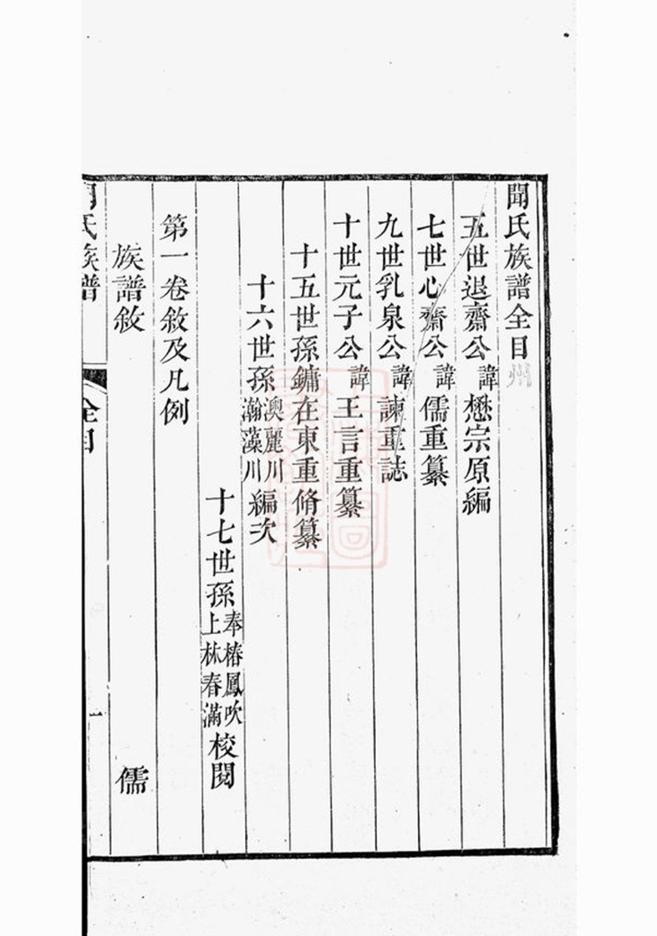 聞氏族譜全目
五世退齋公諱懋宗原編
七世心齋公諱儒重纂
九世乳泉公諱諫重誌
十世元子公諱王言重纂
十五世孫鏞在東重脩纂
十六世孫澳麗川瀚藻川編次
十七世孫奉椿鳳吹上林春滿校閱
第一卷敘及凡例
族譜敘 儒
聞氏族譜 全目 一